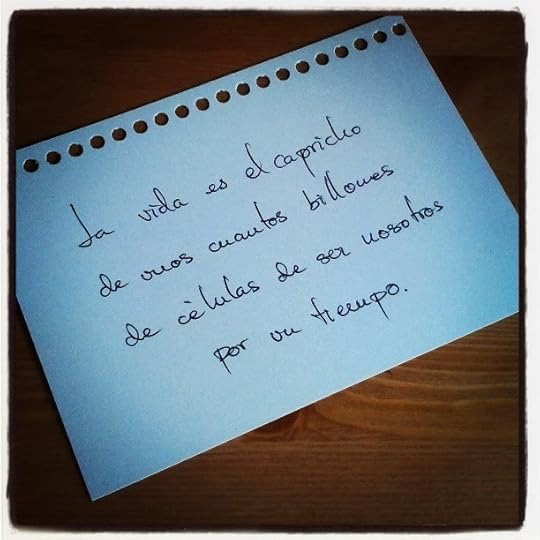 La vida es el capricho
de unos cuantos billones
de cèlulas de ser nosotros
por un tiempo.